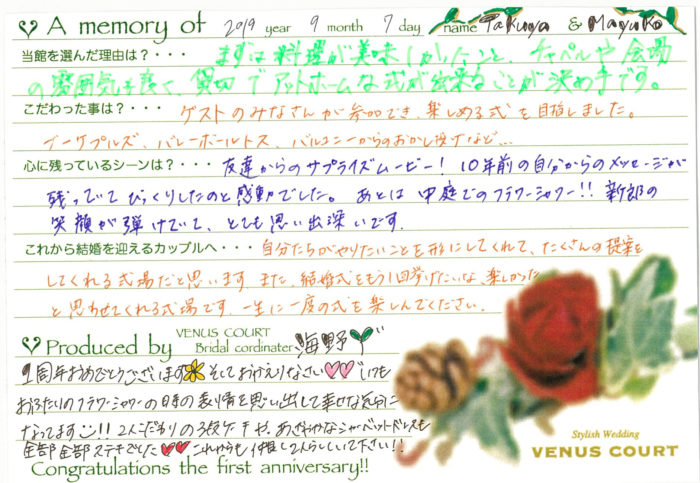 A memory of 2019 year 9 month 7 day name Takuya & Mayuko
当館を選んだ理由は？・・・ まずは料理が美味しかったこと、チャペルや会場
の雰囲気も良く、貸切でアットホームな式が出来ることが決め手です。
こだわった事は？・・・ ゲストのみなさんが参加でき、楽しめる式を目指しました。
ブーケプルズ、バレーボールトス、バルコニーからのおかし投げなど…
心に残っているシーンは？・・・ 友達からのサプライズムービー！10年前の自分からのメッセージが
残っていてびっくりしたのと感動でした。あとは中庭でのフラワーシャワー!! 新郎の
笑顔が弾けていて、とても思い出深いです。
これから結婚を迎えるカップルへ・・・ 自分たちがやりたいことを形にしてくれて、たくさんの提案を
してくれる式場だと思います。また、結婚式をもう1回挙げたいな、楽しかった
と思わせてくれる式場です。一生に一度の式を楽しんでください。
Produced by VENUS COURT Bridal cordinater 海野
1周年おめでとうございます そしておかえりなさい♡♡ いつも
おふたりのフラワーシャワーの日時の表情を思い出して幸せな気分に
なってます!! 2人こだわりの3枚ケーキや、あざやかなシャーベットドレスも
全部全部ステキでした♡♡これからも仲良し2人らしいて下さい!!
Congratulations the first anniversary!!
Stylish Wedding
VENUS COURT